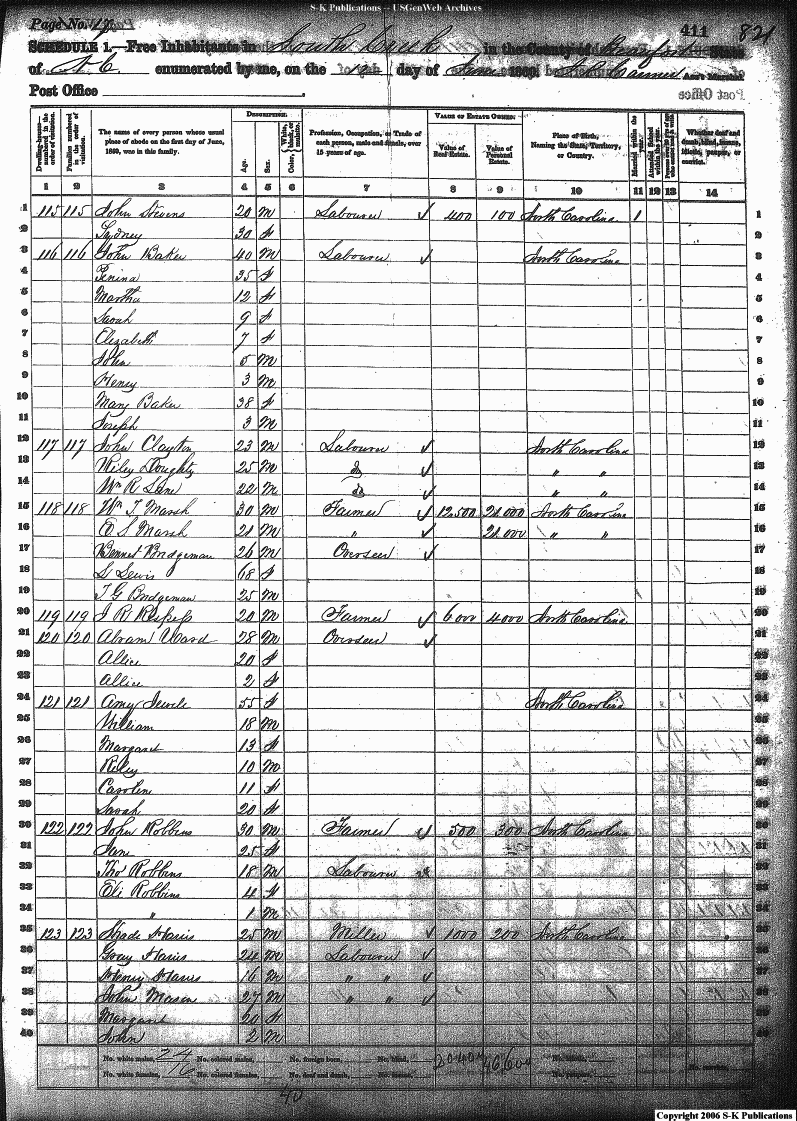 S-K Publications -- USGenWeb Archives
Page No. 17
411 821
SCHEDULE 1.—Free Inhabitants in South Creek in the County of Beaufort State
of N C enumerated by me, on the day of June 1860. Ass't Marshal.
Post Office
DESCRIPTION. VALUE OF ESTATE OWNED.
Dwelling-house—numbered in the order of visitation. Families numbered in the order of visitation. The name of every person whose usual place of abode on the first day of June, 1860, was in this family. Age. Sex. Color, {White, black, or mulatto. Profession, Occupation, or Trade of each person, male and female, over 15 years of age. Value of Real Estate. Value of Personal Estate. Place of Birth, Naming the State, Territory, or Country. Married within the year. Attended School within the year. Whether deaf and dumb, blind, insane, idiotic, pauper, or convict.
1 2 3 4 5 6 7 8 9 10 11 12 13 14
1 115 115 John Stevens 20 M Labourer ✓ 400 100 North Carolina 1 1
2 Sydney 30 f 2
3 116 116 John Baker 40 M Labourer ✓ North Carolina 3
4 Penina 35 f 4
5 Martha 12 f 5
6 Sarah 9 f 6
7 Elizabeth 7 f 7
8 John 5 M 8
9 Henry 3 M 9
10 Mary Baker 38 f 10
11 Joseph 3 M 11
12 117 117 John Clayton 23 M Labourer ✓ North Carolina 12
13 Wiley Doughty 25 M do ✓ " " 13
14 Wm R Lane 22 M do ✓ " " 14
15 118 118 Wm T Marsh 30 M Farmer ✓ 12,500 21,000 North Carolina 15
16 S Marsh 21 M " ✓ 21,000 " " 16
17 Bennet Bridgeman 26 M Overseer ✓ 17
18 S Lewis 68 f 18
19 T G Bridgeman 25 M 19
20 119 119 J R Respess 20 M Farmer ✓ 6000 4000 North Carolina 20
21 120 120 Abram Ward 28 M Overseer ✓ 21
22 Allice 20 f 22
23 Allice 2 f 23
24 121 121 Amy Jewels 55 f North Carolina 24
25 William 18 M 25
26 Margaret 13 f 26
27 Riley 10 M 27
28 Carolen 11 f 28
29 Sarah 20 f 29
30 122 122 John Robbins 30 M Farmer ✓ 500 300 North Carolina 30
31 Jane 25 f 31
32 Thos Robbins 18 M Labourer 32
33 Eli Robbins 4 f 33
34 " 1 M 34
35 123 123 Shade Harris 25 M Miller ✓ 1000 200 North Carolina 35
36 Gray Harris 24 M Labourer ✓ 36
37 Henry Harris 16 M " " ✓ 37
38 John Mason 27 M " " ✓ 38
39 Margaret 60 f 39
40 John 2 M 40
No. white males, 24 No. colored males, No. foreign born, No. blind, 20400 46600
No. white females, 16 No. colored females, No. deaf and dumb, No. insane,
40
Copyright 2006 S-K Publications